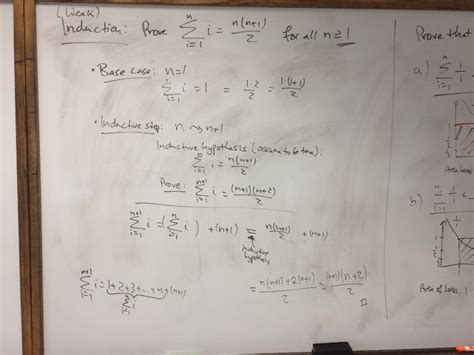 (Weak)
Induction: Prove ∑_{i=1}^{n} i = n(n+1)/2 for all n ≥ 1
• Base case: n=1
∑_{i=1}^{1} i = 1 = 1·2/2 = 1·(1+1)/2
• Inductive step: n ⤳ n+1
Inductive hypothesis (assume to be true):
∑_{i=1}^{n} i = n(n+1)/2
Prove: ∑_{i=1}^{n+1} i = (n+1)(n+2)/2
∑_{i=1}^{n+1} i = (∑_{i=1}^{n} i) + (n+1) = n(n+1)/2 + (n+1)
inductive
hypothesis
= n(n+1) + 2(n+1)/2 = (n+1)(n+2)/2 □
∑_{i=1}^{n+1} i = 1+2+3+...+n+(n+1)
∑_{i=1}^{n} i
Prove that
a) ∑_{i=1}^{n} 1/i
Area boxes
b) ∑_{i=1}^{n} 1/i
Area of boxes: 1